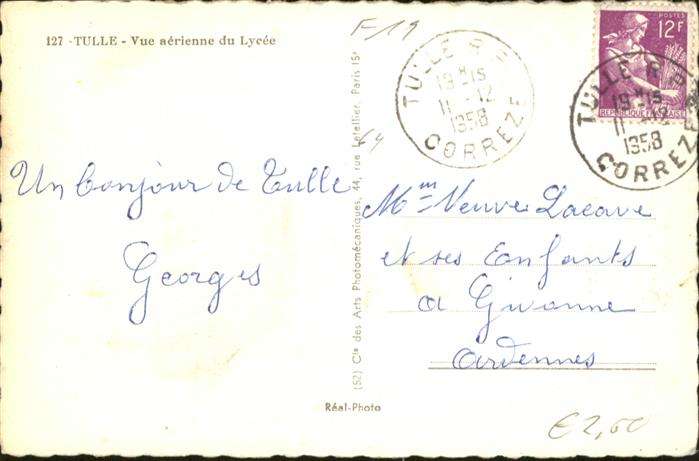 127 - TULLE - Vue aérienne du Lycée
F 19
Un bonjour de Tulle
Georges
TULLE R.P.
19 H 15
11 - 12
1958
CORREZE
12F
REPUBLIQUE FRANÇAISE
TULLE R.P.
19 H 15
11 - 12
1958
CORREZE
Mme Veuve Lacave
et ses Enfants
a Givonne
Ardennes
(52) Cie des Arts Photomécaniques, 44, rue Letellier, Paris 15e
Réal-Photo
€2,00